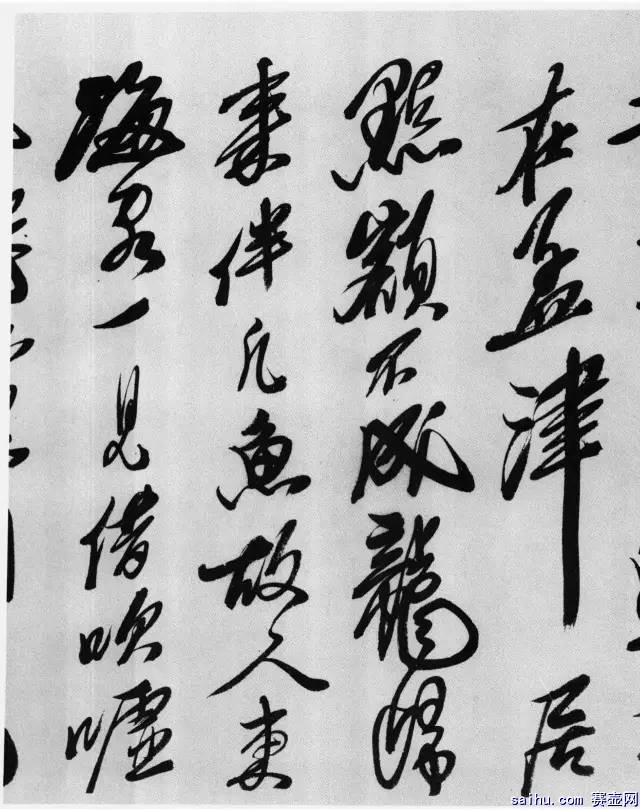 在孟津居
點額不成龍歸
來伴凡魚故人東
海客一見借吹噓
saihu.com 赛壶网